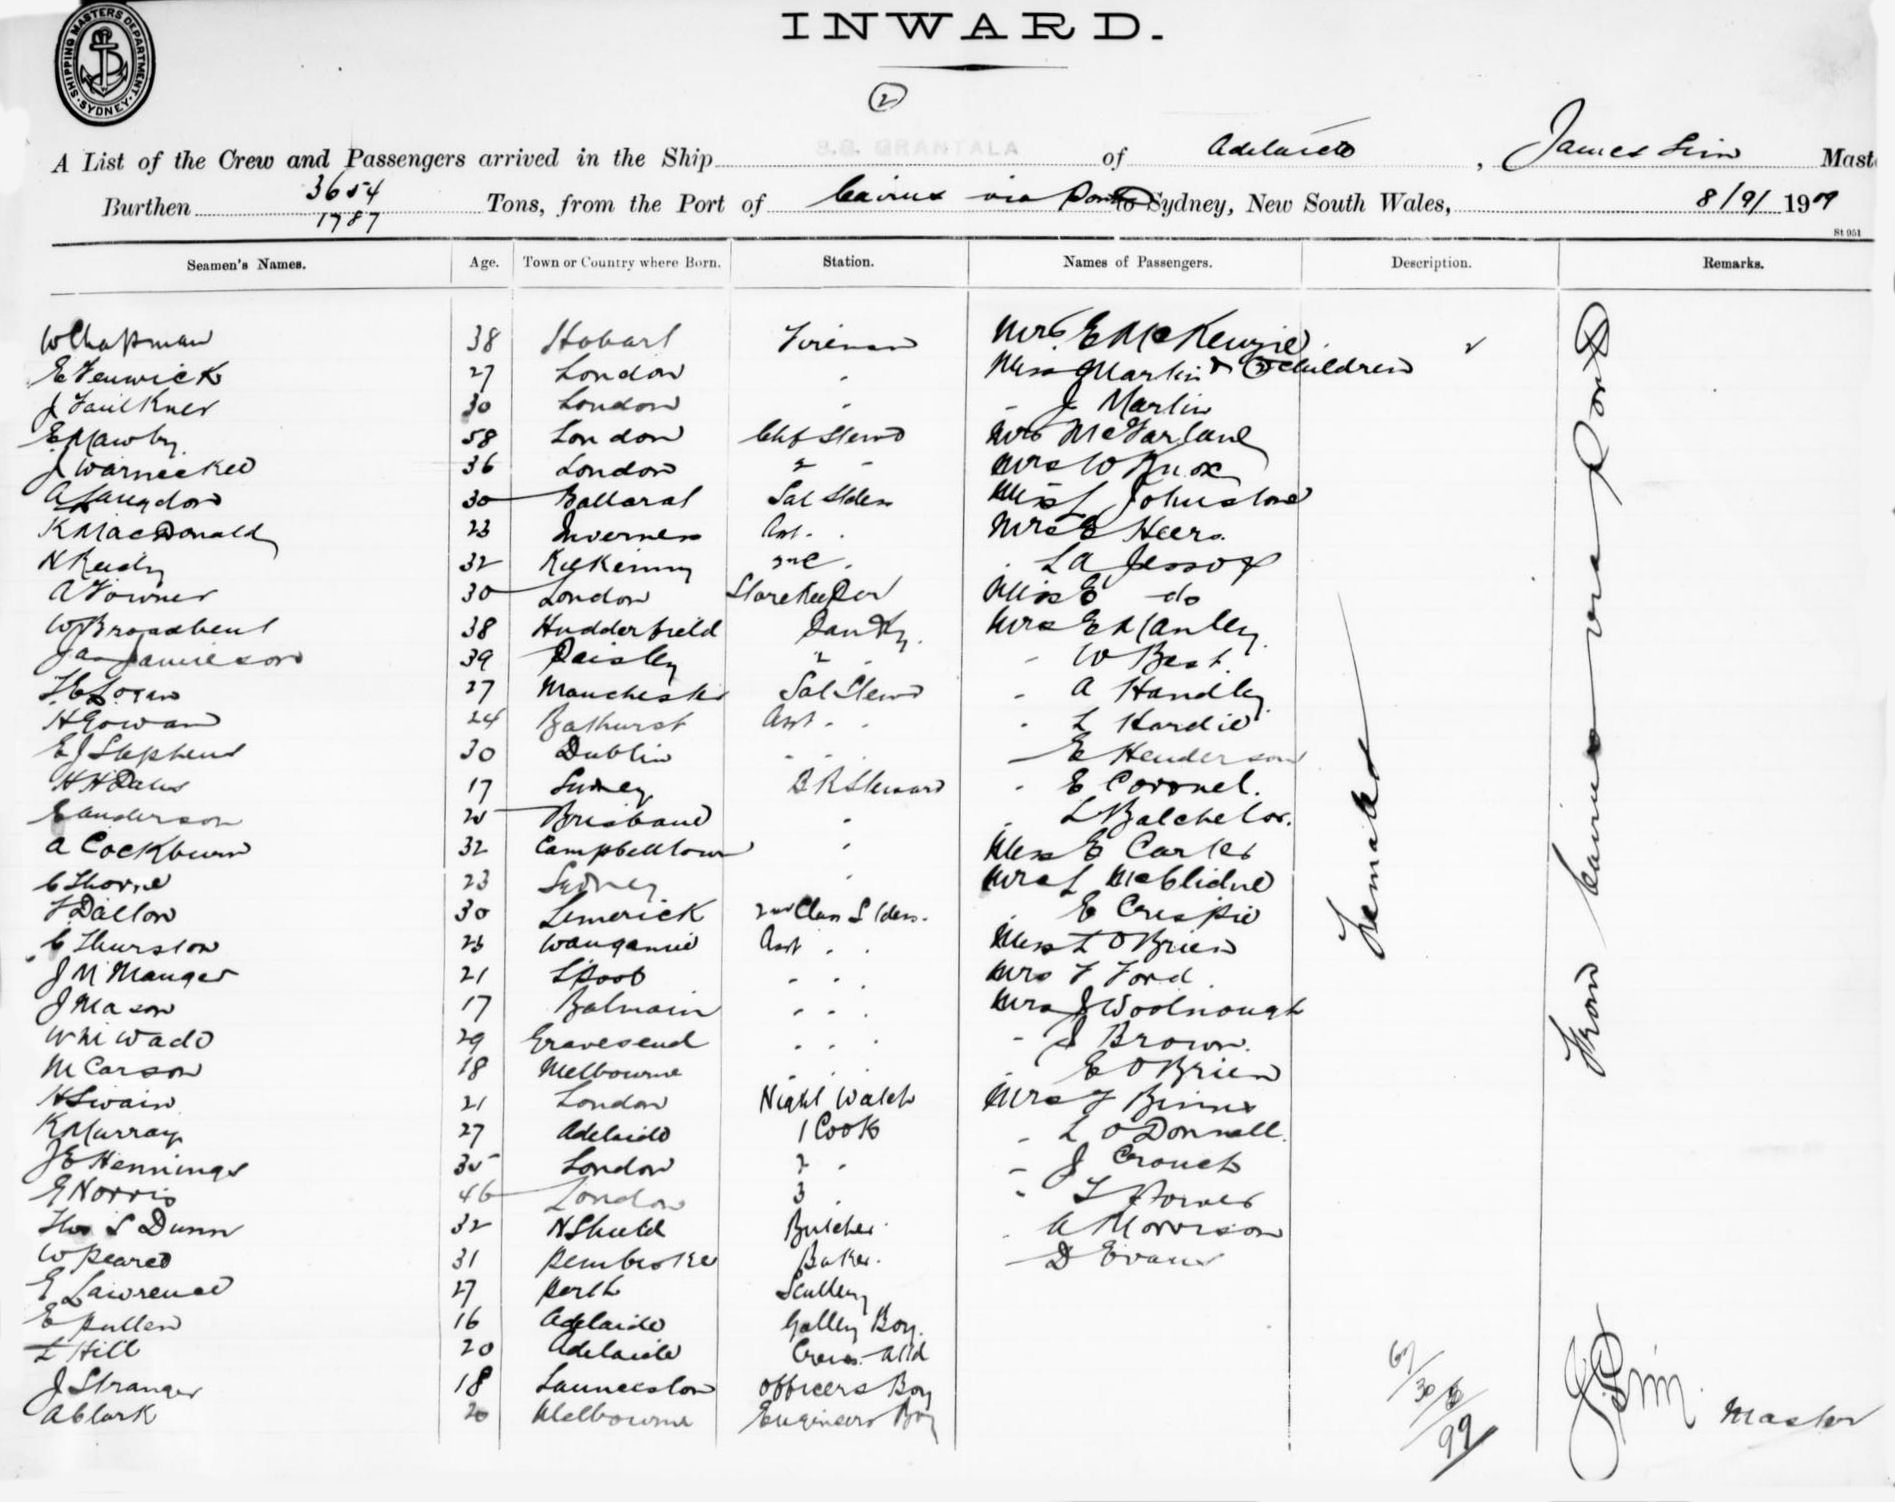 SHIPPING MASTERS DEPARTMENT
SYDNEY
INWARD.
2
A List of the Crew and Passengers arrived in the Ship S.S. GRANTALA of Adelaide, James Sim Maste
Burthen 3654 / 1787 Tons, from the Port of Cairns via Ports to Sydney, New South Wales, 8/9/1909
St 951
Seamen's Names. Age. Town or Country where Born. Station. Names of Passengers. Description. Remarks.
W Chapman 38 Hobart Fireman Mrs E McKenzie
E Fenwick 27 London " Miss Martin & children
J Faulkner 30 London " - J Martin
E Mawby 58 London Chf Stewd Mrs McFarlane
J Warnecked 36 London 2 " Mrs W Knox
A Langdon 30 Ballarat Sal Stdess Miss L Johnstone
K MacDonald 23 Inverness Asst " Mrs E Heers
N Reidy 32 Kilkenny 2nd C " " L A Jessop
A Fowner 30 London Storekeeper Miss E do
W Broadbent 38 Hudderfield Pantry Mrs E Manley
Jas Jamieson 39 Paisley 2 " - W Best
F E Logan 27 Manchester Sal Stewd - A Handley
H Gowan 24 Bathurst Asst " " - L Hardie
E J Stephens 30 Dublin " " - E Henderson
H H Dales 17 Sydney B R Steward - E Coronel.
E Anderson 25 Brisbane " - L Batchelor.
A Cockburn 32 Campbelltown " Miss E Carter
C Thorne 23 Sydney " Mrs L
F Dalton 30 Limerick 2nd Class Stdess. " E Crespie
C Thurston 23 Wanganui Asst " " Miss L O'Brien
J M Manger 21 L'Pool " " " Mrs F Ford
J Mason 17 Balmain " " " Mrs J Woolnough
W M Wade 29 Gravesend " " " - J Brown.
M Carson 18 Melbourne " " " - E O'Brien
H Swain 21 London Night Watch Mrs F Binns
K Murray 27 Adelaide 1 Cook - L O'Donnell
J E Hennings 35 London 2 " - J Crouch
E Norris 46 London 3 " -
Thos S Dunn 32 N Shield Butcher " A Morrison
W Pearce 31 Pembroke Baker. - D Evans
E Lawrence 27 Perth Scullery
E Pullen 16 Adelaide Galley Boy.
L Hill 20 Adelaide Crews Attd
J Stranger 18 Launceston Officers Boy
A Clark 20 Melbourne Engineers Boy
Females
From Cairns via Ports
30
99
J Sim Master